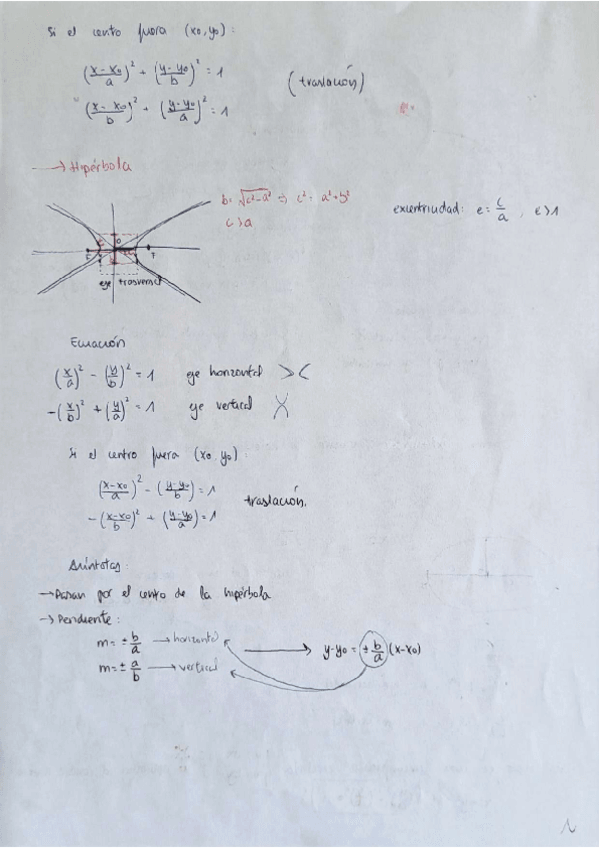 Si el centro fuera (x0,y0):
((x-x0)/a)² + ((y-y0)/b)² = 1
(traslación)
((x-x0)/b)² + ((y-y0)/a)² = 1
→ Hipérbola
b = √(c²-a²) ⇒ c² = a²+b²
c>a
excentricidad: e = c/a, e>1
F
F
eje trasversal
Ecuación
(x/a)² - (y/b)² = 1 eje horizontal
-(x/b)² + (y/a)² = 1 eje vertical
Si el centro fuera (x0,y0):
((x-x0)/a)² - ((y-y0)/b)² = 1
traslación.
-((x-x0)/b)² + ((y-y0)/a)² = 1
Asíntotas:
→ Pasan por el centro de la hipérbola
→ Pendiente:
m = ± b/a → horizontal → y-y0 = ± b/a (x-x0)
m = ± a/b → vertical